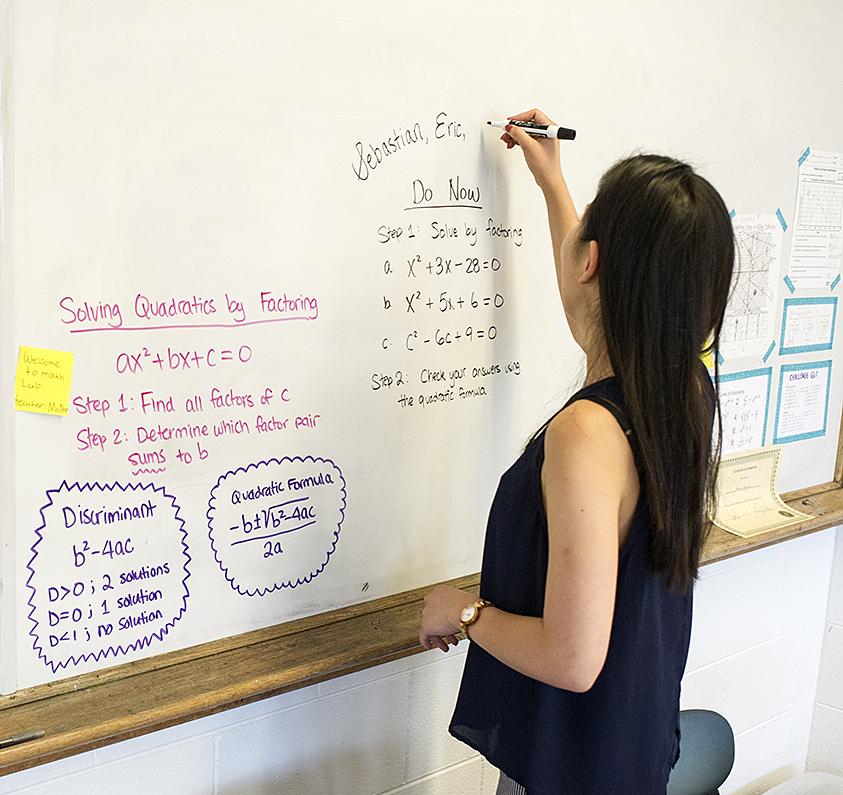 Sebastian, Eric,
Do Now
Step 1: Solve by factoring
a. x² + 3x - 28 = 0
b. x² + 5x + 6 = 0
c. c² - 6c + 9 = 0
Step 2: Check your answers using
the quadratic formula
Solving Quadratics by Factoring
ax² + bx + c = 0
Step 1: Find all factors of c
Step 2: Determine which factor pair
sums to b
Welcome
to math
Lab
teacher:
Discriminant
b² - 4ac
D>0 ; 2 solutions
D=0 ; 1 solution
D<1 ; no solution
Quadratic Formula
-b±√b²-4ac
2a
CHALLENGE